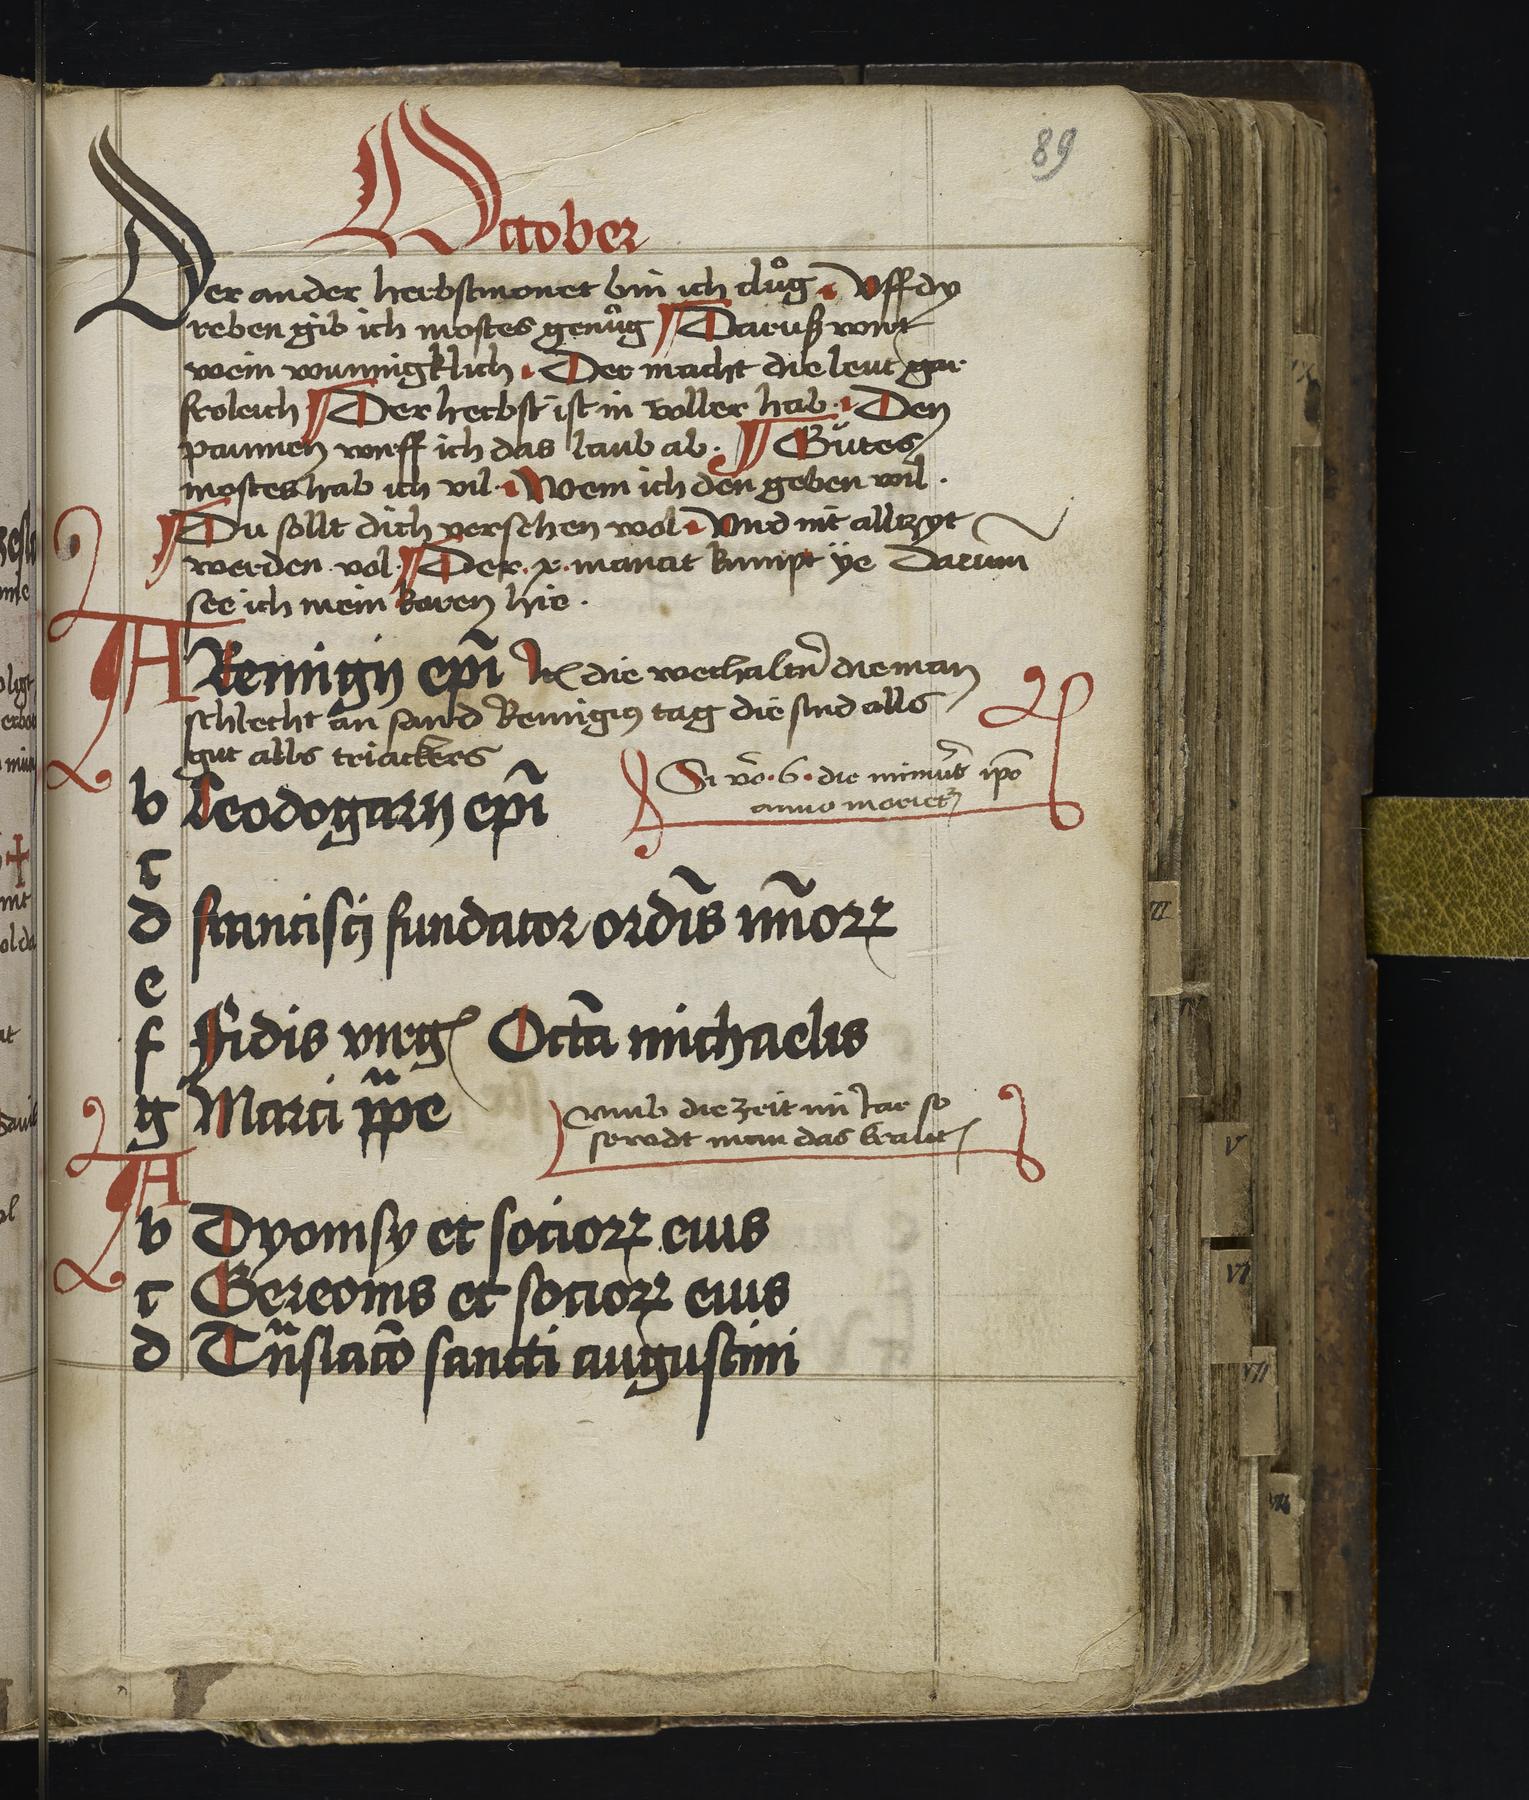 89
October
Der ander herbstmonet bin ich clůg Vff dy
reben gib ich mostes genůg Daruß wirt
wein wunnigklich Der macht die leut gar
frolich Der herbst ist in voller hab Den
paumen wirff ich das laub ab. Gütes
mostes hab ich vil Wem ich den geben wil.
Du sollt dich versehen wol Vnd nit alltzyt
werden vol Der .x. manat kumpt ye Darum̄
see ich mein koren hie.
A Remigij ep̄i It die die man
schlecht an sand Remigius tag die sind alls
gut alls triackers
Si v̄o .6. die ip̄o
anno
b Leodogarij ep̄i
c
d francisci fundator ordīs mīorꝝ
e
f Fidis virg Octā michaelis
g Marci p̄pe
vmb die zeit im Jar so
sewdt man das kraut
A
b Dyonisy et sociorꝝ eius
c Gereonis et sociorꝝ eius
d Trn̄slacō sancti augustini
III
IV
V
VI
VII